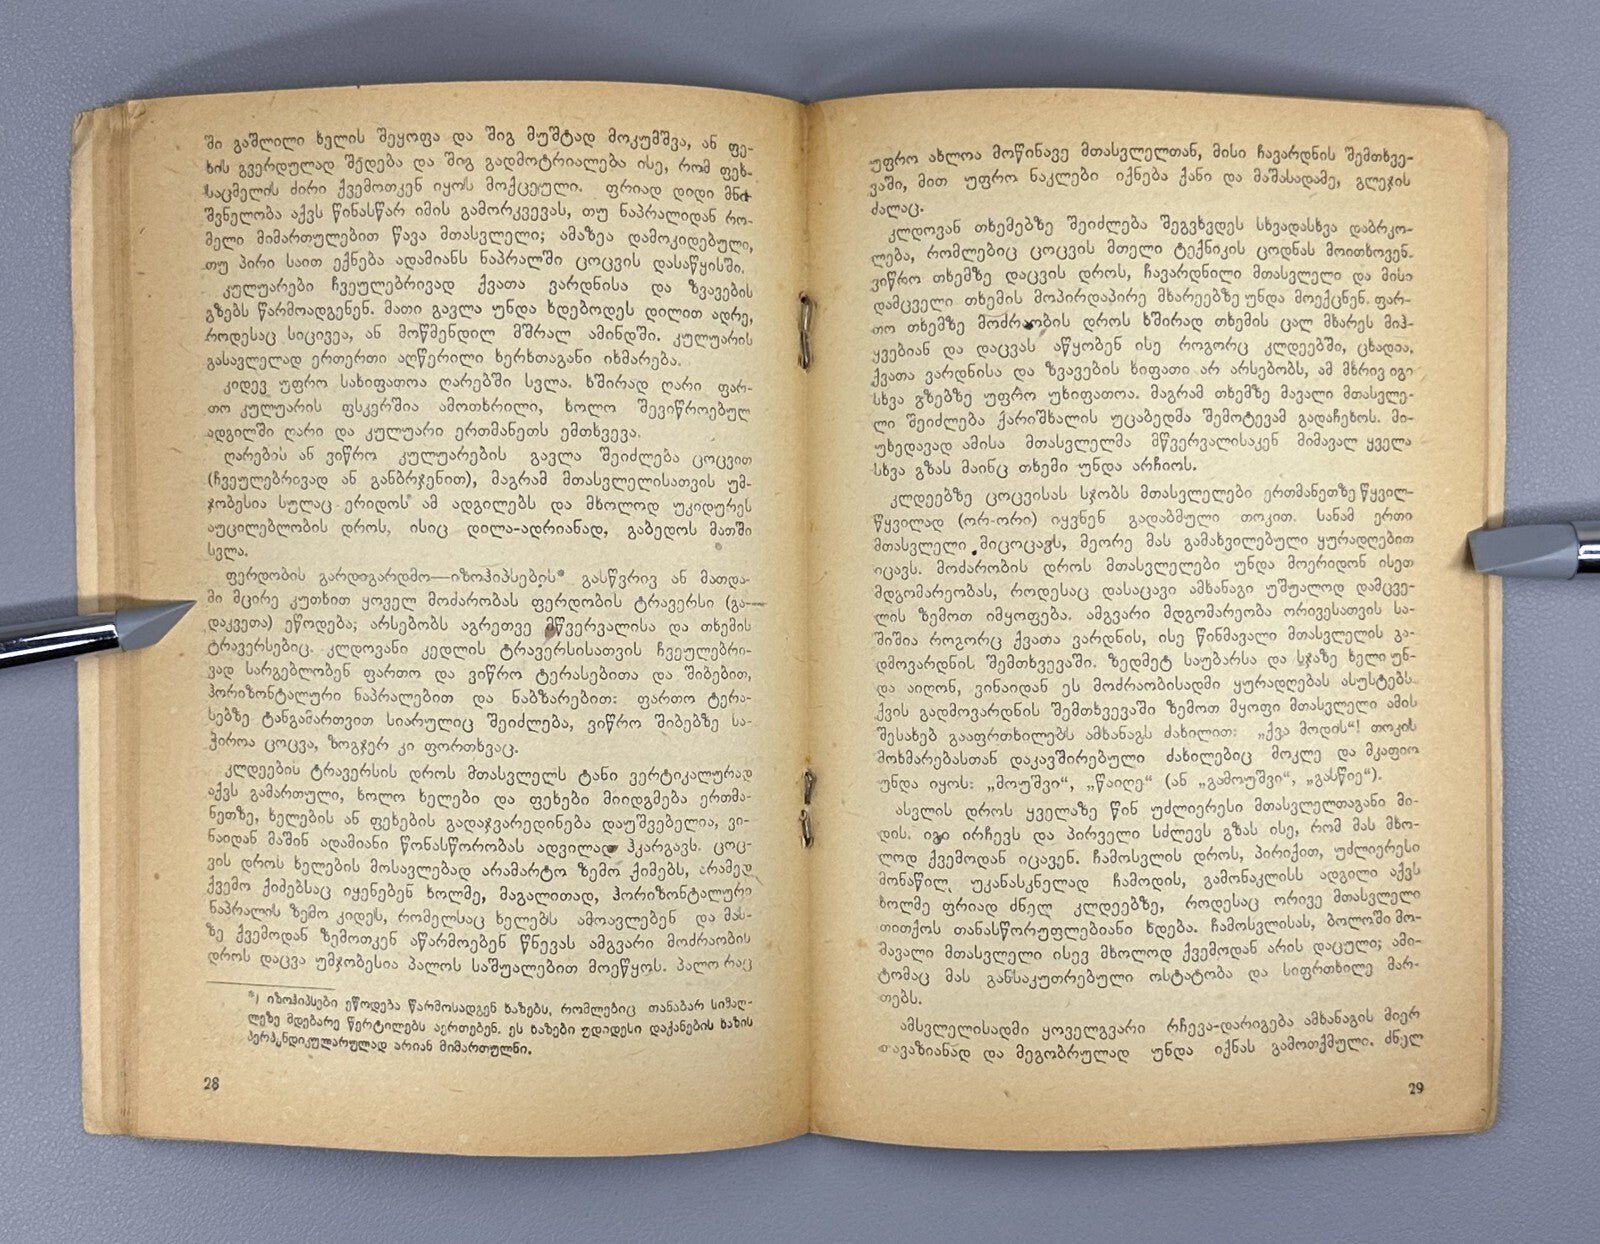 ში გაშლილი ხელის შეყოფა და შიგ მუშტად მოკუმშვა, ან ფე-
ხის გვერდულად შედება და შიგ გადმოტრიალება ისე, რომ ფეხ-
საცმელის ძირი ქვემოთკენ იყოს მოქცეული. ფრიად დიდი მნი-
შვნელობა აქვს წინასწარ იმის გამორკვევას, თუ ნაპრალიდან რო-
მელი მიმართულებით წავა მთასვლელი; ამაზეა დამოკიდებული,
თუ პირი საით ექნება ადამიანს ნაპრალში ცოცვის დასაწყისში.
კულუარები ჩვეულებრივად ქვათა ვარდნისა და ზვავების
გზებს წარმოადგენენ. მათი გავლა უნდა ხდებოდეს დილით ადრე,
როდესაც სიცივეა, ან მოწმენდილ მშრალ ამინდში. კულუარის
გასავლელად ერთერთი აღწერილი ხერხთაგანი იხმარება.
კიდევ უფრო სახიფათოა ღარებში სვლა. ხშირად ღარი ფარ-
თო კულუარის ფსკერშია ამოთხრილი, ხოლო შევიწროებულ
ადგილში ღარი და კულუარი ერთმანეთს ემთხვევა.
ღარების ან ვიწრო კულუარების გავლა შეიძლება ცოცვით
(ჩვეულებრივად ან განბრჯენით), მაგრამ მთასვლელისათვის უმ-
ჯობესია სულაც ერიდოს ამ ადგილებს და მხოლოდ უკიდურეს
აუცილებლობის დროს, ისიც დილა-ადრიანად, გაბედოს მათში
სვლა.
ფერდობის გარდიგარდმო—იზოჰიპსების* გასწვრივ ან მათდა-
მი მცირე კუთხით ყოველ მოძარობას ფერდობის ტრავერსი (გა-
დაკვეთა) ეწოდება; არსებობს აგრეთვე მწვერვალისა და თხემის
ტრავერსებიც. კლდოვანი კედლის ტრავერსისათვის ჩვეულებრი-
ვად სარგებლობენ ფართო და ვიწრო ტერასებითა და შიბებით,
ჰორიზონტალური ნაპრალებით და ნაბზარებით: ფართო ტერა-
სებზე ტანგამართვით სიარულიც შეიძლება, ვიწრო შიბებზე სა-
ჭიროა ცოცვა, ზოგჯერ კი ფორთხვაც.
კლდეების ტრავერსის დროს მთასვლელს ტანი ვერტიკალურად
აქვს გამართული, ხოლო ხელები და ფეხები მიიდგმება ერთმა-
ნეთზე, ხელების ან ფეხების გადაჯვარედინება დაუშვებელია, ვი-
ნაიდან მაშინ ადამიანი წონასწორობას ადვილად ჰკარგავს. ცოც-
ვის დროს ხელების მოსავლებად არამარტო ზემო ქიმებს, არამედ
ქვემო ქიმებსაც იყენებენ ხოლმე, მაგალითად, ჰორიზონტალური
ნაპრალის ზემო კიდეს, რომელსაც ხელებს ამოავლებენ და მას-
ზე ქვემოდან ზემოთკენ აწარმოებენ წნევას ამგვარი მოძრაობის
დროს დაცვა უმჯობესია პალოს საშუალებით მოეწყოს. პალო რაც
*) იზოჰიპსები ეწოდება წარმოსადგენ ხაზებს, რომლებიც თანაბარ სიმაღ-
ლეზე მდებარე წერტილებს აერთებენ. ეს ხაზები უდიდესი დაქანების ხაზის
პერპენდიკულარულად არიან მიმართულნი.
28
უფრო ახლოა მოწინავე მთასვლელთან, მისი ჩავარდნის შემთხვე-
ვაში, მით უფრო ნაკლები იქნება ქანი და მაშასადამე, გლეჯის
ძალაც.
კლდოვან თხემებზე შეიძლება შეგვხვდეს სხვადასხვა დაბრკო-
ლება, რომლებიც ცოცვის მთელი ტექნიკის ცოდნას მოითხოვენ.
ვიწრო თხემზე დაცვის დროს, ჩავარდნილი მთასვლელი და მისი
დამცველი თხემის მოპირდაპირე მხარეებზე უნდა მოექცნენ. ფარ-
თო თხემზე მოძრაობის დროს ხშირად თხემის ცალ მხარეს მიჰ-
ყვებიან და დაცვას აწყობენ ისე როგორც კლდეებში, ცხადია.
ქვათა ვარდნისა და ზვავების ხიფათი არ არსებობს, ამ მხრივ იგი
სხვა გზებზე უფრო უხიფათოა. მაგრამ თხემზე მავალი მთასვლე-
ლი შეიძლება ქარიშხალის უცაბედმა შემოტევამ გადაჩეხოს. მი-
უხედავად ამისა მთასვლელმა მწვერვალისაკენ მიმავალ ყველა
სხვა გზას მაინც თხემი უნდა არჩიოს.
კლდეებზე ცოცვისას სჯობს მთასვლელები ერთმანეთზე წყვილ-
წყვილად (ორ-ორი) იყვნენ გადაბმული თოკით. სანამ ერთი
მთასვლელი მიცოცავს, მეორე მას გამახვილებული ყურადღებით
იცავს. მოძარობის დროს მთასვლელები უნდა მოერიდონ ისეთ
მდგომარეობას, როდესაც დასაცავი ამხანაგი უშუალოდ დამცვე-
ლის ზემოთ იმყოფება. ამგვარი მდგომარეობა ორივესათვის სა-
შიშია როგორც ქვათა ვარდნის, ისე წინმავალი მთასვლელის გა-
დმოვარდნის შემთხვევაში. ზედმეტ საუბარსა და სჯაზე ხელი უნ-
და აიღონ, ვინაიდან ეს მოძრაობისადმი ყურადღებას ასუსტებს.
ქვის გადმოვარდნის შემთხვევაში ზემოთ მყოფი მთასვლელი ამის
შესახებ გააფრთხილებს ამხანაგს ძახილით: „ქვა მოდის“! თოკის
მოხმარებასთან დაკავშირებული ძახილებიც მოკლე და მკაფიო
უნდა იყოს: „მოუშვი“, „წაიღე“ (ან „გამოუშვი“, „გასწიე“).
ასვლის დროს ყველაზე წინ უძლიერესი მთასვლელთაგანი მი-
დის. იგი ირჩევს და პირველი სძლევს გზას ისე, რომ მას მხო-
ლოდ ქვემოდან იცავენ. ჩამოსვლის დროს, პირიქით, უძლიერესი
მონაწილე უკანასკნელად ჩამოდის, გამონაკლისს ადგილი აქვს
ხოლმე ფრიად ძნელ კლდეებზე, როდესაც ორივე მთასვლელი
თითქოს თანასწორუფლებიანი ხდება. ჩამოსვლისას, ბოლოში მო-
მავალი მთასვლელი ისევ მხოლოდ ქვემოდან არის დაცული; ამი-
ტომაც მას განსაკუთრებული ოსტატობა და სიფრთხილე მარ-
თებს.
ამსვლელისადმი ყოველგვარი რჩევა-დარიგება ამხანაგის მიერ
თავაზიანად და მეგობრულად უნდა იქნას გამოთქმული. ძნელ
29